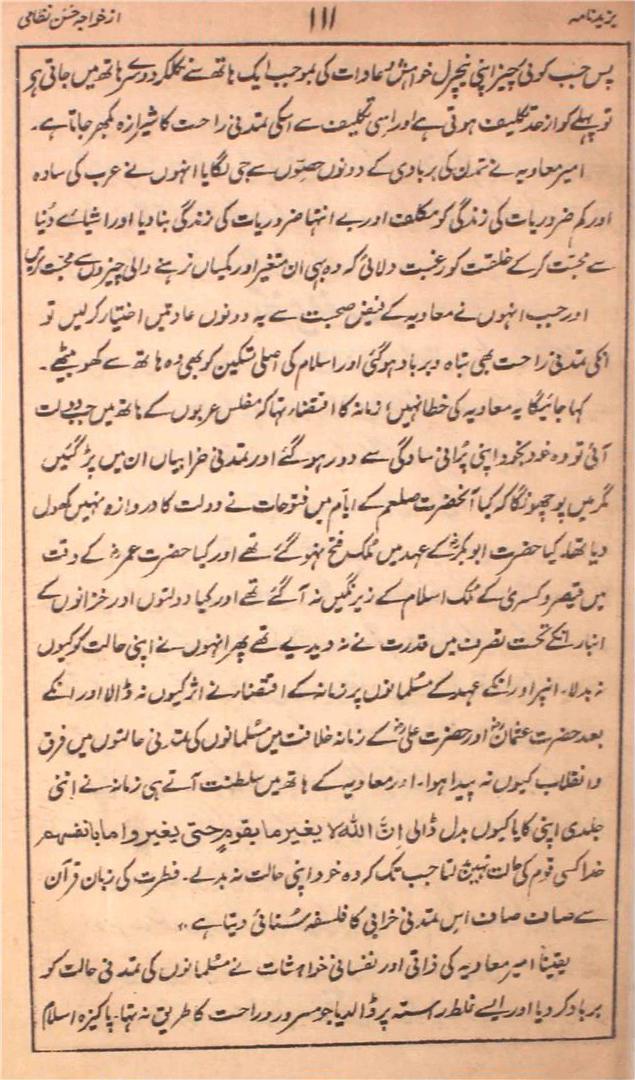 یزیدنامہ
۱۱۱
از خواجہ حسن نظامی
پس جب کوئی چیز اپنی نیچرل خواہش و عادات کی بموجب ایک ہاتھ سے نکلکر دوسرے ہاتھ میں جاتی ہو
تو پہلے کو ازحد تکلیف ہوتی ہے اور اسی تکلیف سے اسکی تمدنی راحت کا شیرازہ بکھر جاتا ہے۔
امیر معاویہ نے تمدن کی بربادی کے دونوں حصوں سے جی لگایا انہوں نے عرب کی سادہ
اور کم ضروریات کی زندگی کو مکلف اور بے انتہا ضروریات کی زندگی بنا دیا اور اشیائے دُنیا
سے محبت کرکے خلقت کو رغبت دلائی کہ وہ بھی ان متغیر اور یکساں نہ رہنے والی چیزوں سے محبت کریں
اور جب انہوں نے معاویہ کے فیض صحبت سے یہ دونوں عادتیں اختیار کرلیں تو
انکی تمدنی راحت بھی تباہ و برباد ہوگئی اور اسلام کی اصلی تسکین کو بھی وہ ہاتھ سے کھو بیٹھے۔
کہا جائیگا یہ معاویہ کی خطا نہیں؛ زمانہ کا اقتضاء تہا کہ مفلس عربوں کے ہاتھ میں جب دولت
آئی تو وہ خود بخود اپنی پُرانی سادگی سے دور ہو گئے اور تمدنی خرابیاں ان میں پڑ گئیں
مگر میں پوچھونگا کہ کیا آنحضرت صلعم کے ایام میں فتوحات نے دولت کا دروازہ نہیں کھول
دیا تھا۔ کیا حضرت ابوبکرؓ کے عہد میں مُلک فتح نہو گئے تھے اور کیا حضرت عمرؓ کے وقت
میں قیصر و کسریٰ کے مُلک اسلام کے زیر نگیں نہ آ گئے تھے اور کیا دولتوں اور خزانوں کے
انبار انکے تحت تصرف میں قدرت نے نہ دیدیے تھے پھر انہوں نے اپنی حالت کو کیوں
نہ بدلا۔ انپر اور انکے عہد کے مسلمانوں پر زمانہ کے اقتضاء نے اثر کیوں نہ ڈالا اور انکے
بعد حضرت عثمانؓ اور حضرت علیؓ کے زمانہ خلافت میں مسلمانوں کی تمدنی حالتوں میں فرق
و انقلاب کیوں نہ پیدا ہوا۔ اور معاویہ کے ہاتھ میں سلطنت آتے ہی زمانہ نے اتنی
جلدی اپنی کایا کیوں بدل ڈالی اِنَّ اللّٰہ لا یغیر ما بقومٍ حتی یغیروا ما بانفسہم
خدا کسی قوم کی حالت نہیں بدلتا جب تک کہ وہ خود اپنی حالت نہ بدلے۔ فطرت کی زبان قرآن
سے صاف صاف اس تمدنی خرابی کا فلسفہ سُنائی دیتا ہے۔
یقیناً امیر معاویہ کی ذاتی اور نفسانی خواہشات نے مسلمانوں کی تمدنی حالت کو
برباد کر دیا اور ایسے غلط رستہ پر ڈالدیا جو سرور و راحت کا طریق نہ تہا۔ پاکیزہ اسلام